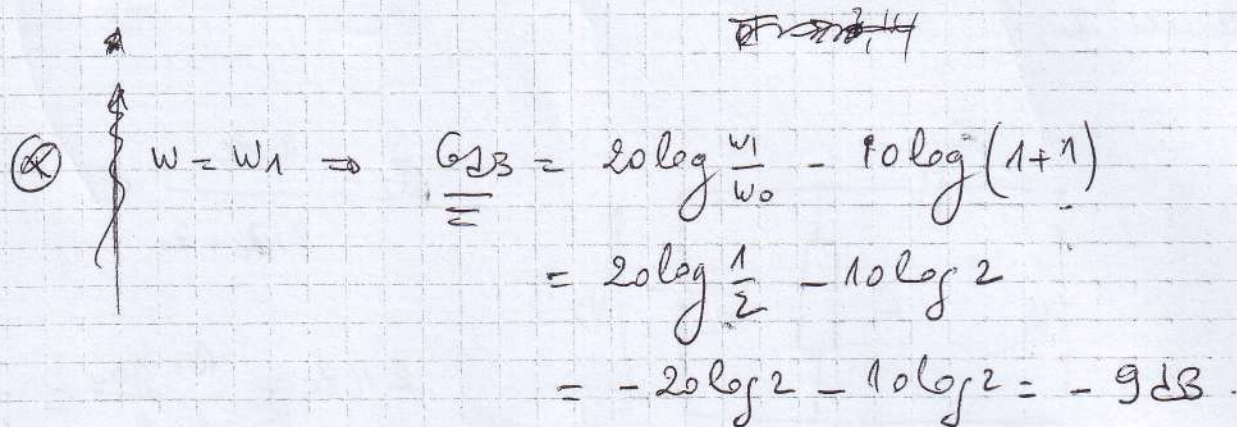 w = w1 ⇒ GdB = 20 log w1/w0 - 10 log (1+1)
= 20 log 1/2 - 10 log 2
= - 20 log 2 - 10 log 2 = - 9 dB.